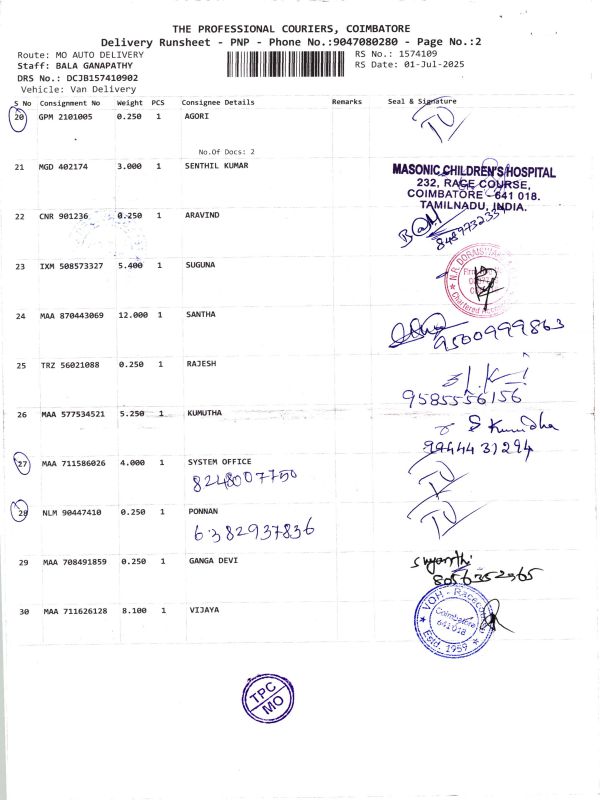 THE PROFESSIONAL COURIERS, COIMBATORE
Delivery Runsheet - PNP - Phone No.:9047080280 - Page No.:2
Route: MO AUTO DELIVERY
RS No.: 1574109
Staff: BALA GANAPATHY
RS Date: 01-Jul-2025
DRS No.: DCJB157410902
Vehicle: Van Delivery
S No Consignment No Weight PCS Consignee Details Remarks Seal & Signature
20 GPM 2101005 0.250 1 AGORI
No.Of Docs: 2
21 MGD 402174 3.000 1 SENTHIL KUMAR
MASONIC CHILDREN'S HOSPITAL
232, RACE COURSE,
COIMBATORE - 641 018.
TAMILNADU, INDIA.
22 CNR 901236 0.250 1 ARAVIND
23 IXM 508573327 5.400 1 SUGUNA
24 MAA 870443069 12.000 1 SANTHA
9500999863
25 TRZ 56021088 0.250 1 RAJESH
9585556156
26 MAA 577534521 5.250 1 KUMUTHA
S Kumudha
9944431294
27 MAA 711586026 4.000 1 SYSTEM OFFICE
8248007750
28 NLM 90447410 0.250 1 PONNAN
6382937836
29 MAA 708491859 0.250 1 GANGA DEVI
8056352965
30 MAA 711626128 8.100 1 VIJAYA
VOH - Racecourse
Coimbatore
641 018
Estd. 1959
TPC
MO